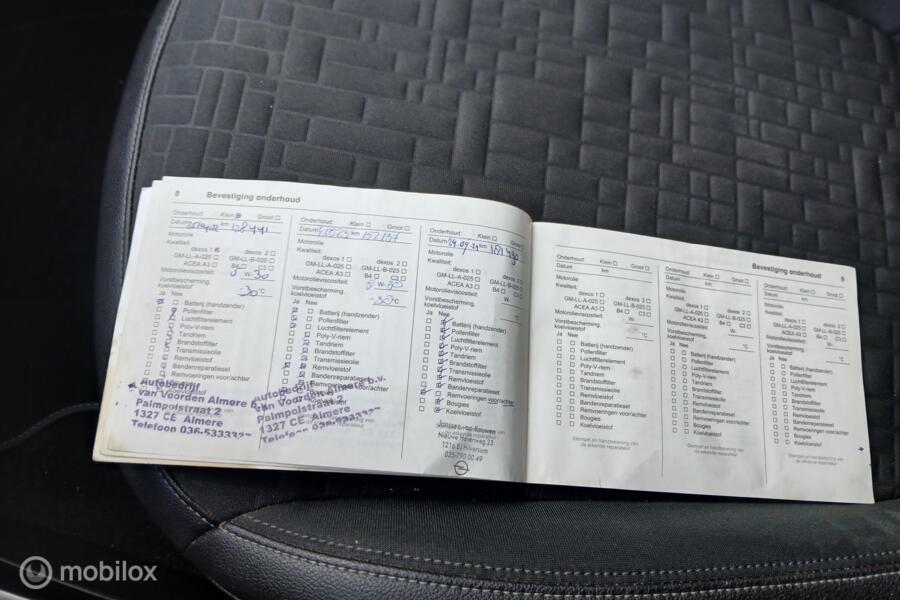 8 Bevestiging onderhoud
Onderhoud: Klein Groot
Datum km 128441
Motorolie
Kwaliteit:
dexos 1 dexos 2
GM-LL-A-025 GM-LL-B-025
ACEA A3 B4 C3
Motorolieviscositeit: 5 W-30
Vorstbescherming.
koelvloeistof -30°C
Ja Nee
Batterij (handzender)
Pollenfilter
Luchtfilterelement
Poly-V-riem
Tandriem
Brandstoffilter
Transmissieolie
Remvloeistof
Bandenreparatieset
Remvoeringen voor/achter
Autobedrijf
van Voorden Almere B.V.
Palmpolstraat 2
1327 CE Almere
Telefoon 036-533332
Onderhoud: Klein Groot
Datum km 152157
Motorolie
Kwaliteit:
dexos 1 dexos 2
GM-LL-A-025 GM-LL-B-025
ACEA A3 B4 C3
Motorolieviscositeit: W-30
Vorstbescherming.
koelvloeistof -30°C
Ja Nee
Batterij (handzender)
Pollenfilter
Luchtfilterelement
Poly-V-riem
Tandriem
Brandstoffilter
Transmissieolie
Remvloeistof
Bandenreparatieset
Remvoeringen voor/achter
Autobedrijf
van Voorden Almere b.v.
Palmpolstraat 2
1327 CE Almere
Telefoon
Onderhoud: Klein Groot
Datum 24.09 km
Motorolie
Kwaliteit:
dexos 1 dexos 2
GM-LL-A-025 GM-LL-B-025
ACEA A3 B4 C3
Motorolieviscositeit: W-
Vorstbescherming.
koelvloeistof °C
Ja Nee
Batterij (handzender)
Pollenfilter
Luchtfilterelement
Poly-V-riem
Tandriem
Brandstoffilter
Transmissieolie
Remvloeistof
Bandenreparatieset
Remvoeringen voor/achter
Bougies
Koelvloeistof
Janssen van Kouwen
Nieuwe Havenweg 23
1216 BJ Hilversum
035-790 00 49
Bevestiging onderhoud 9
Onderhoud: Klein Groot
Datum km
Motorolie
Kwaliteit:
dexos 1 dexos 2
GM-LL-A-025 GM-LL-B-025
ACEA A3 B4 C3
Motorolieviscositeit: W-
Vorstbescherming.
koelvloeistof °C
Ja Nee
Batterij (handzender)
Pollenfilter
Luchtfilterelement
Poly-V-riem
Tandriem
Brandstoffilter
Transmissieolie
Remvloeistof
Bandenreparatieset
Remvoeringen voor/achter
Bougies
Koelvloeistof
Stempel en handtekening van
de erkende reparateur
Onderhoud: Klein Groot
Datum km
Motorolie
Kwaliteit:
dexos 1 dexos 2
GM-LL-A-025 GM-LL-B-025
ACEA A3 B4 C3
Motorolieviscositeit: W-
Vorstbescherming.
koelvloeistof °C
Ja Nee
Batterij (handzender)
Pollenfilter
Luchtfilterelement
Poly-V-riem
Tandriem
Brandstoffilter
Transmissieolie
Remvloeistof
Bandenreparatieset
Remvoeringen voor/achter
Bougies
Koelvloeistof
Stempel en handtekening van
de erkende reparateur
Onderhoud: Klein Groot
Datum km
Motorolie
Kwaliteit:
dexos 1 dexos 2
GM-LL-A-025 GM-LL-B-025
ACEA A3 B4 C3
Motorolieviscositeit: W-
Vorstbescherming.
koelvloeistof °C
Ja Nee
Batterij (handzender)
Pollenfilter
Luchtfilterelement
Poly-V-riem
Tandriem
Brandstoffilter
Transmissieolie
Remvloeistof
Bandenreparatieset
Remvoeringen voor/achter
Bougies
Koelvloeistof
Stempel en handtekening van
de erkende reparateur
mobilox